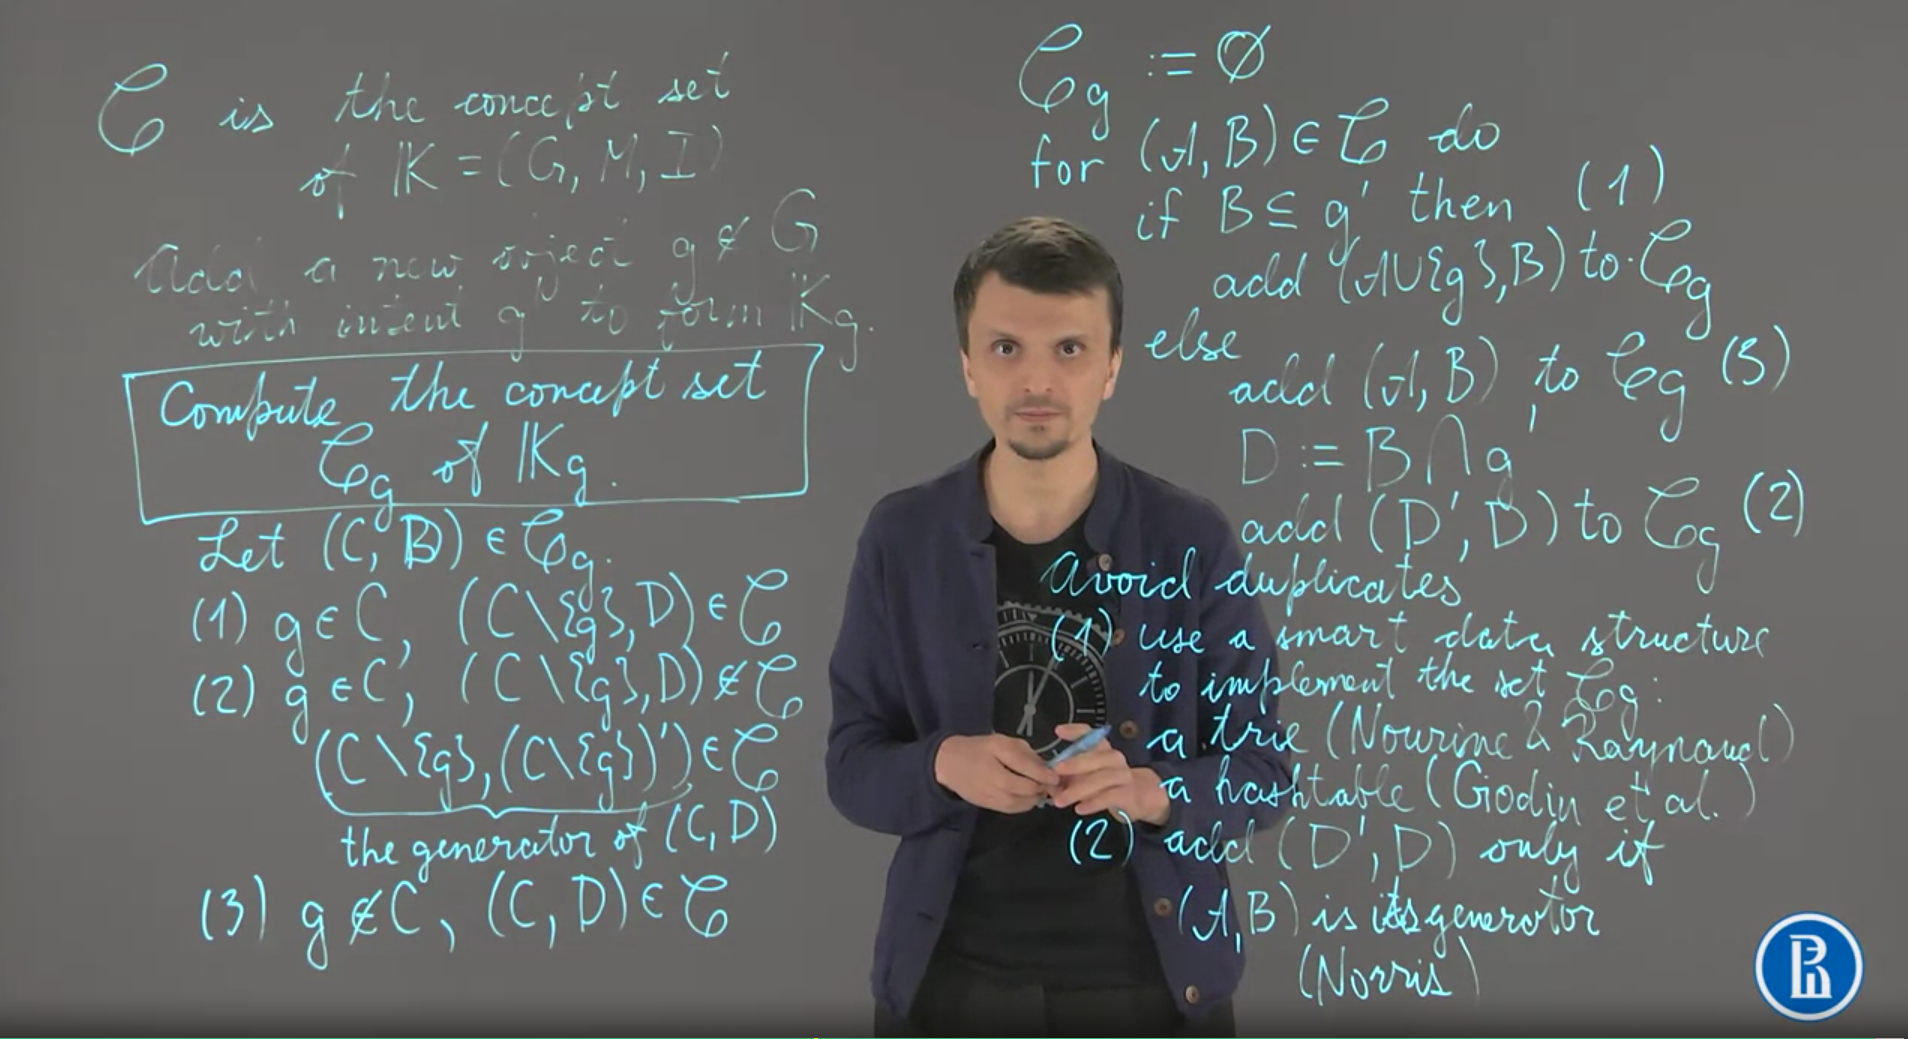 𝒞 is the concept set
of 𝕂 = (G, M, I)
Add a new object g ∉ G
with intent g' to form 𝕂g.
Compute the concept set
𝒞g of 𝕂g.
Let (C, D) ∈ 𝒞g.
(1) g ∈ C, (C\{g}, D) ∈ 𝒞
(2) g ∈ C, (C\{g}, D) ∉ 𝒞
(C\{g}, (C\{g})') ∈ 𝒞
the generator of (C, D)
(3) g ∉ C, (C, D) ∈ 𝒞
𝒞g := ∅
for (A, B) ∈ 𝒞 do
if B ⊆ g' then (1)
add (A∪{g}, B) to 𝒞g
else
add (A, B) to 𝒞g (3)
D := B ∩ g'
add (D', D) to 𝒞g (2)
Avoid duplicates
(1) use a smart data structure
to implement the set 𝒞g:
a trie (Nourine & Raynaud)
a hashtable (Godin et al.)
(2) add (D', D) only if
(A, B) is its generator
(Norris)